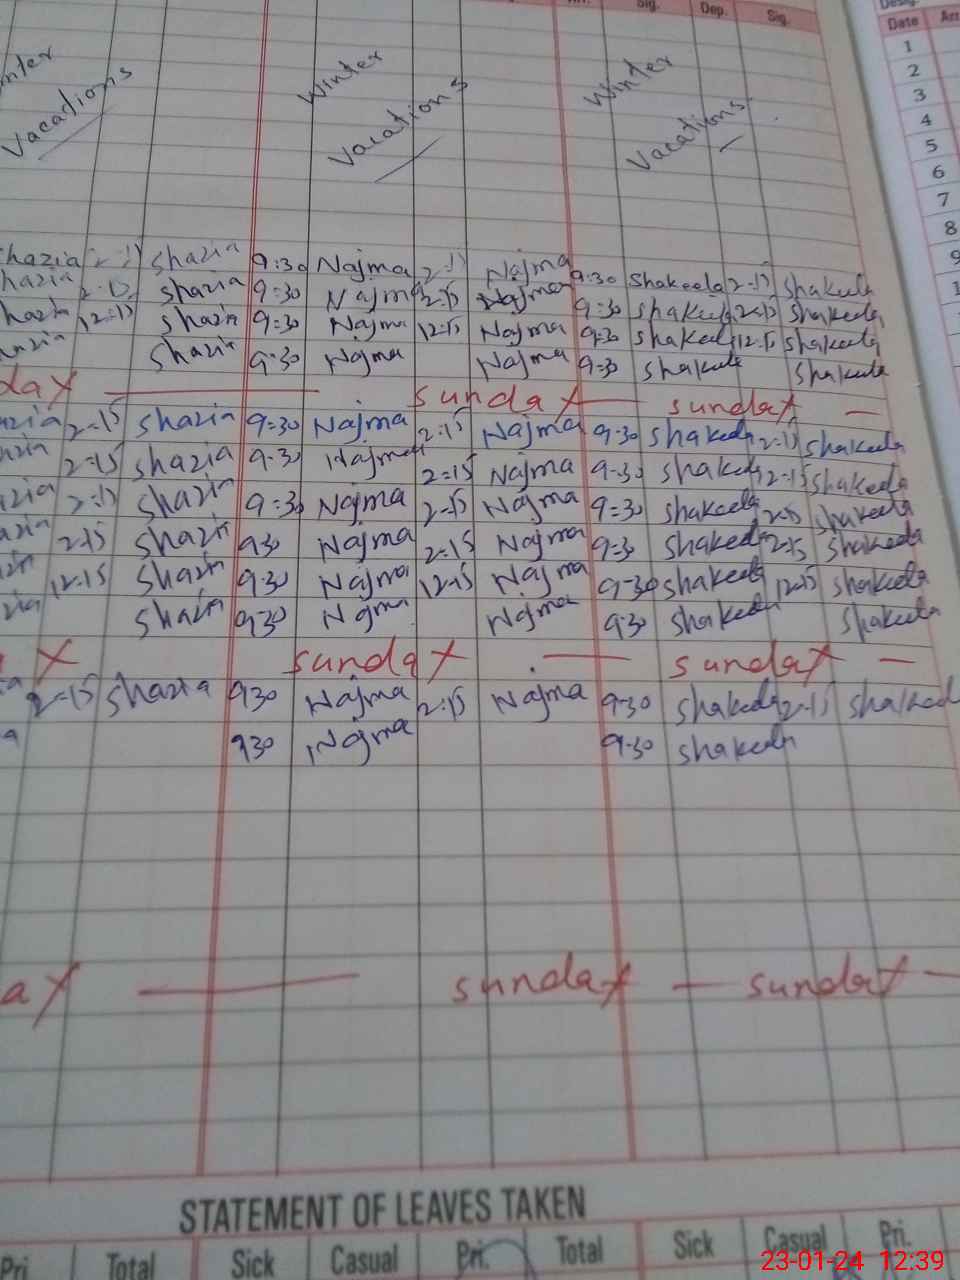 Sig. Dep. Sig.
Date Arr
1
2
3
4
5
6
7
8
9
Winter Winter
Vacations Vacations Vacations
hazia shazia 9:30 Najma 2-15 Najma 9:30 Shakeela 2-15 Shakeela
hazia 2-15 shazia 9=30 Najma 2-15 Najma 9:30 shakeela 2-15 shakeela
hazia 12=15 shazia 9=30 Najma 12=15 Najma 9:30 shakeela 12.15 shakeela
shazia 9.30 Najma Najma 9=30 shakeela shakeela
day — sunday — sunday —
azia 2=15 shazia 9=30 Najma 2=15 Najma 9.30 shakeela 2=15 shakeela
2=15 shazia 9.30 Najma 2=15 Najma 9-30 shakeela 2=15 shakeela
zia 2=15 shazia 9=30 Najma 2=15 Najma 9=30 shakeela 2=15 shakeela
2=15 shazia 930 Najma 2=15 Najma 9=30 shakeela 2=15 shakeela
12=15 shazia 9.30 Najma 12=15 Najma 9-30 shakeela 12=15 shakeela
zia shazia 9.30 Najma Najma 9.30 shakeela shakeela
y sunday — sunday —
2=15 shazia 930 Najma 2=15 Najma 9-30 shakeela 2-15 shakeel
930 Najma 9.30 shakeela
ay — sunday — sunday —
STATEMENT OF LEAVES TAKEN
Pri. Total Sick Casual Pri. Total Sick Casual Pri.
23-01-24 12:39